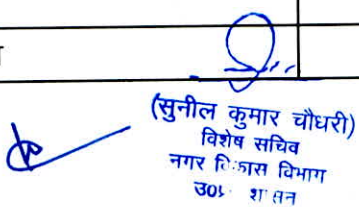 (सुनील कुमार चौधरी)
विशेष सचिव
नगर विकास विभाग
उ0प्र0 शासन